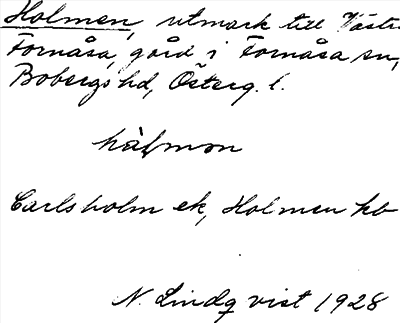 Holmen, utmark till Västr
Fornåsa, gård i Fornåsa sn,
Bobergs hd, Österg. l.
Carlsholm ek, Holmen hb
N. Lindqvist 1928